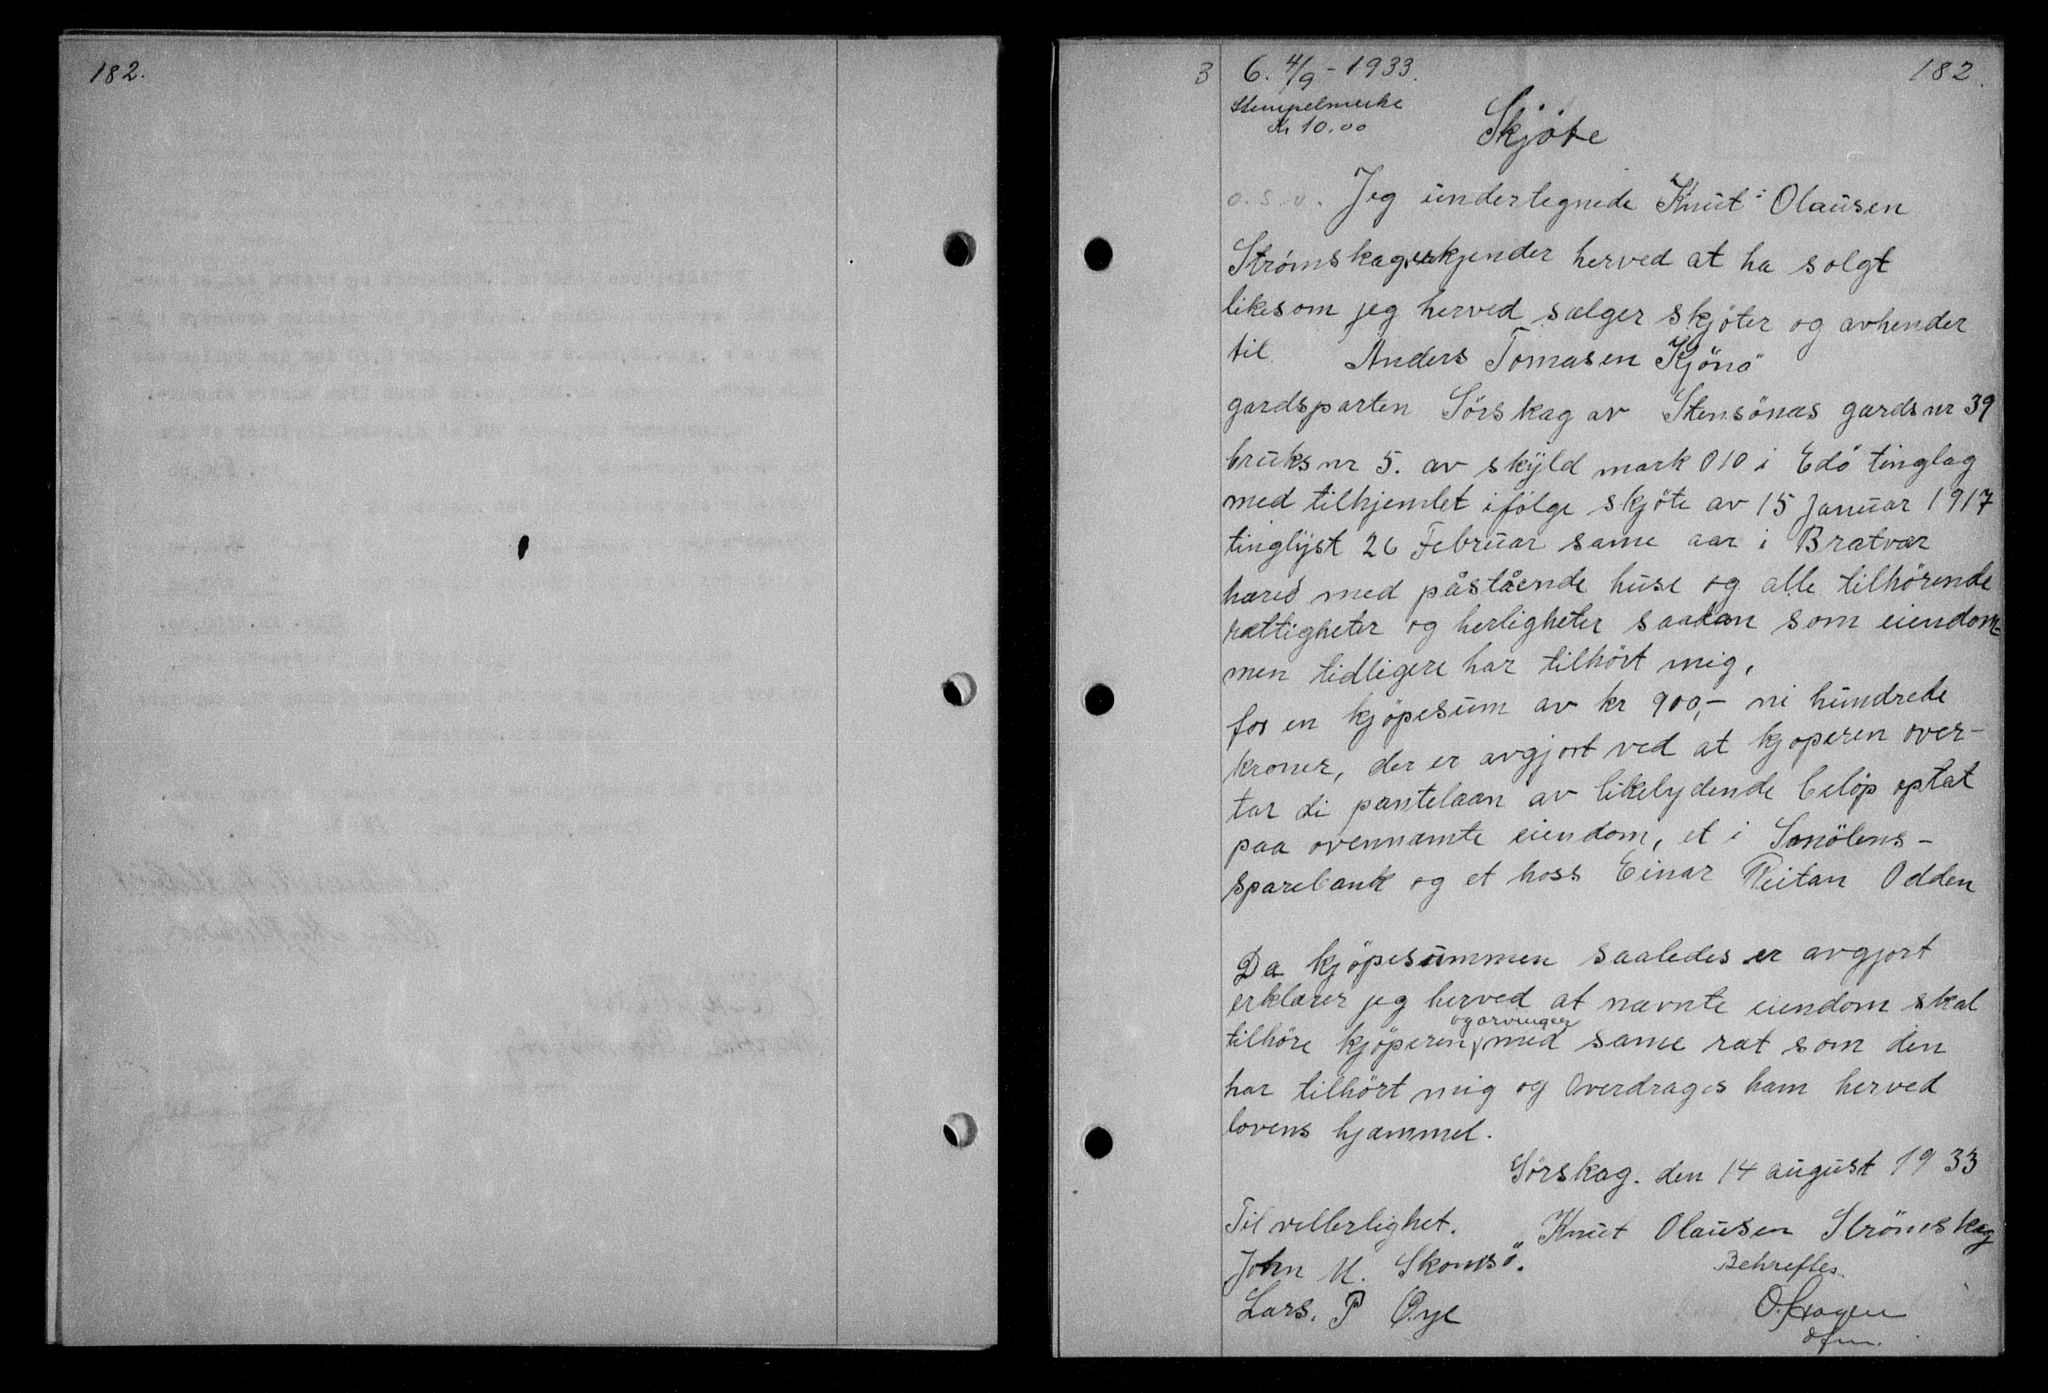 182.
3 6. 4/9 - 1933. 182.
Stempelmerke
Kr 10.00
Skjöte
o. s. v. Jeg undertegnede Knut Olausen
Strømskag erkjender herved at ha solgt
likesom jeg herved sælger skjöter og avhender
til Anders Tomasen Kjönö
gardsparten Sörskag av Stensönes gards nr 39
bruks nr 5. av skyld mark 010 i Edö tinglag
med tilhjemlet ifölge skjöte av 15 Januar 1917
tinglyst 26 Februar same aar i Bratvær
hered med påstående huse og alle tilhörende
rettigheter og herligheter saadan som eiendom-
men tidligere har tilhört mig.
for en kjöpesum av kr 900,- ni hundrede
kroner, der er avgjort ved at kjoperen over-
tar di pantelaan av likelydende belöp optat
paa ovennamte eiendom, et i Smölens-
sparebank og et hoss Einar Reitan Odden
Da kjöpesummen saaledes er avgjort
erklærer jeg herved at nævnte eiendom skal
tilhöre kjöperen og arvinger med same rat som den
har tilhört mig og Overdrages ham herved
lovens hjæmmel.
Sörskag. den 14 august 1933
Til vetterlighet. Knut Olausen Strömskag
John M. Skomsö. Bekreftes.
Lars. P Øye